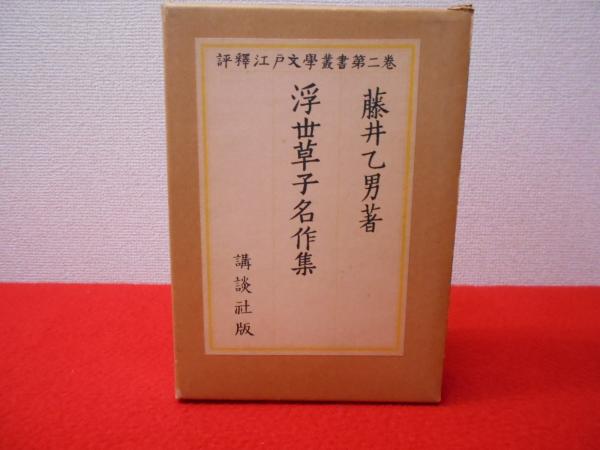 評釋江戸文學叢書第二巻
藤井乙男著
浮世草子名作集
講談社版